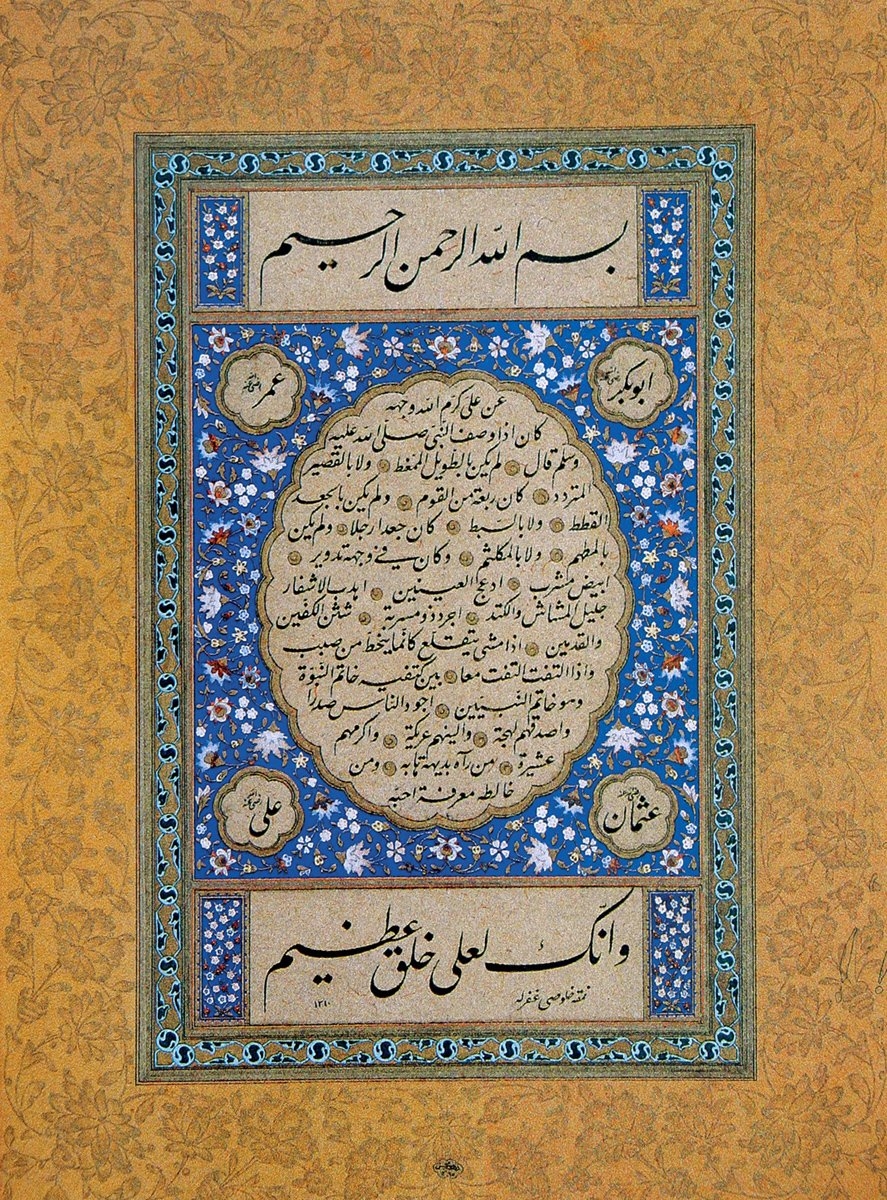 بسم الله الرحمن الرحيم
ابوبكر رضى الله عنه
عمر رضى الله عنه
عن على كرم الله وجهه
كان اذا وصف النبى صلى الله عليه
وسلم قال لم يكن بالطويل الممغط ولا بالقصير
المتردد كان ربعة من القوم ولم يكن بالجعد
القطط ولا بالسبط كان جعدا رجلا ولم يكن
بالمطهم ولا بالمكلثم وكان فى وجهه تدوير
ابيض مشرب ادعج العينين اهدب الاشفار
جليل المشاش والكتد اجرد ذو مسربة شثن الكفين
والقدمين اذا مشى يتقلع كانما ينحط من صبب
واذا التفت التفت معا بين كتفيه خاتم النبوة
وهو خاتم النبيين اجود الناس صدرا
واصدقهم لهجة والينهم عريكة واكرمهم
عشيرة من رآه بديهة هابه ومن
خالطه معرفة احبه
عثمان رضى الله عنه
على رضى الله عنه
وانك لعلى خلق عظيم
نمقه خلوصى غفر له
١٣١٠